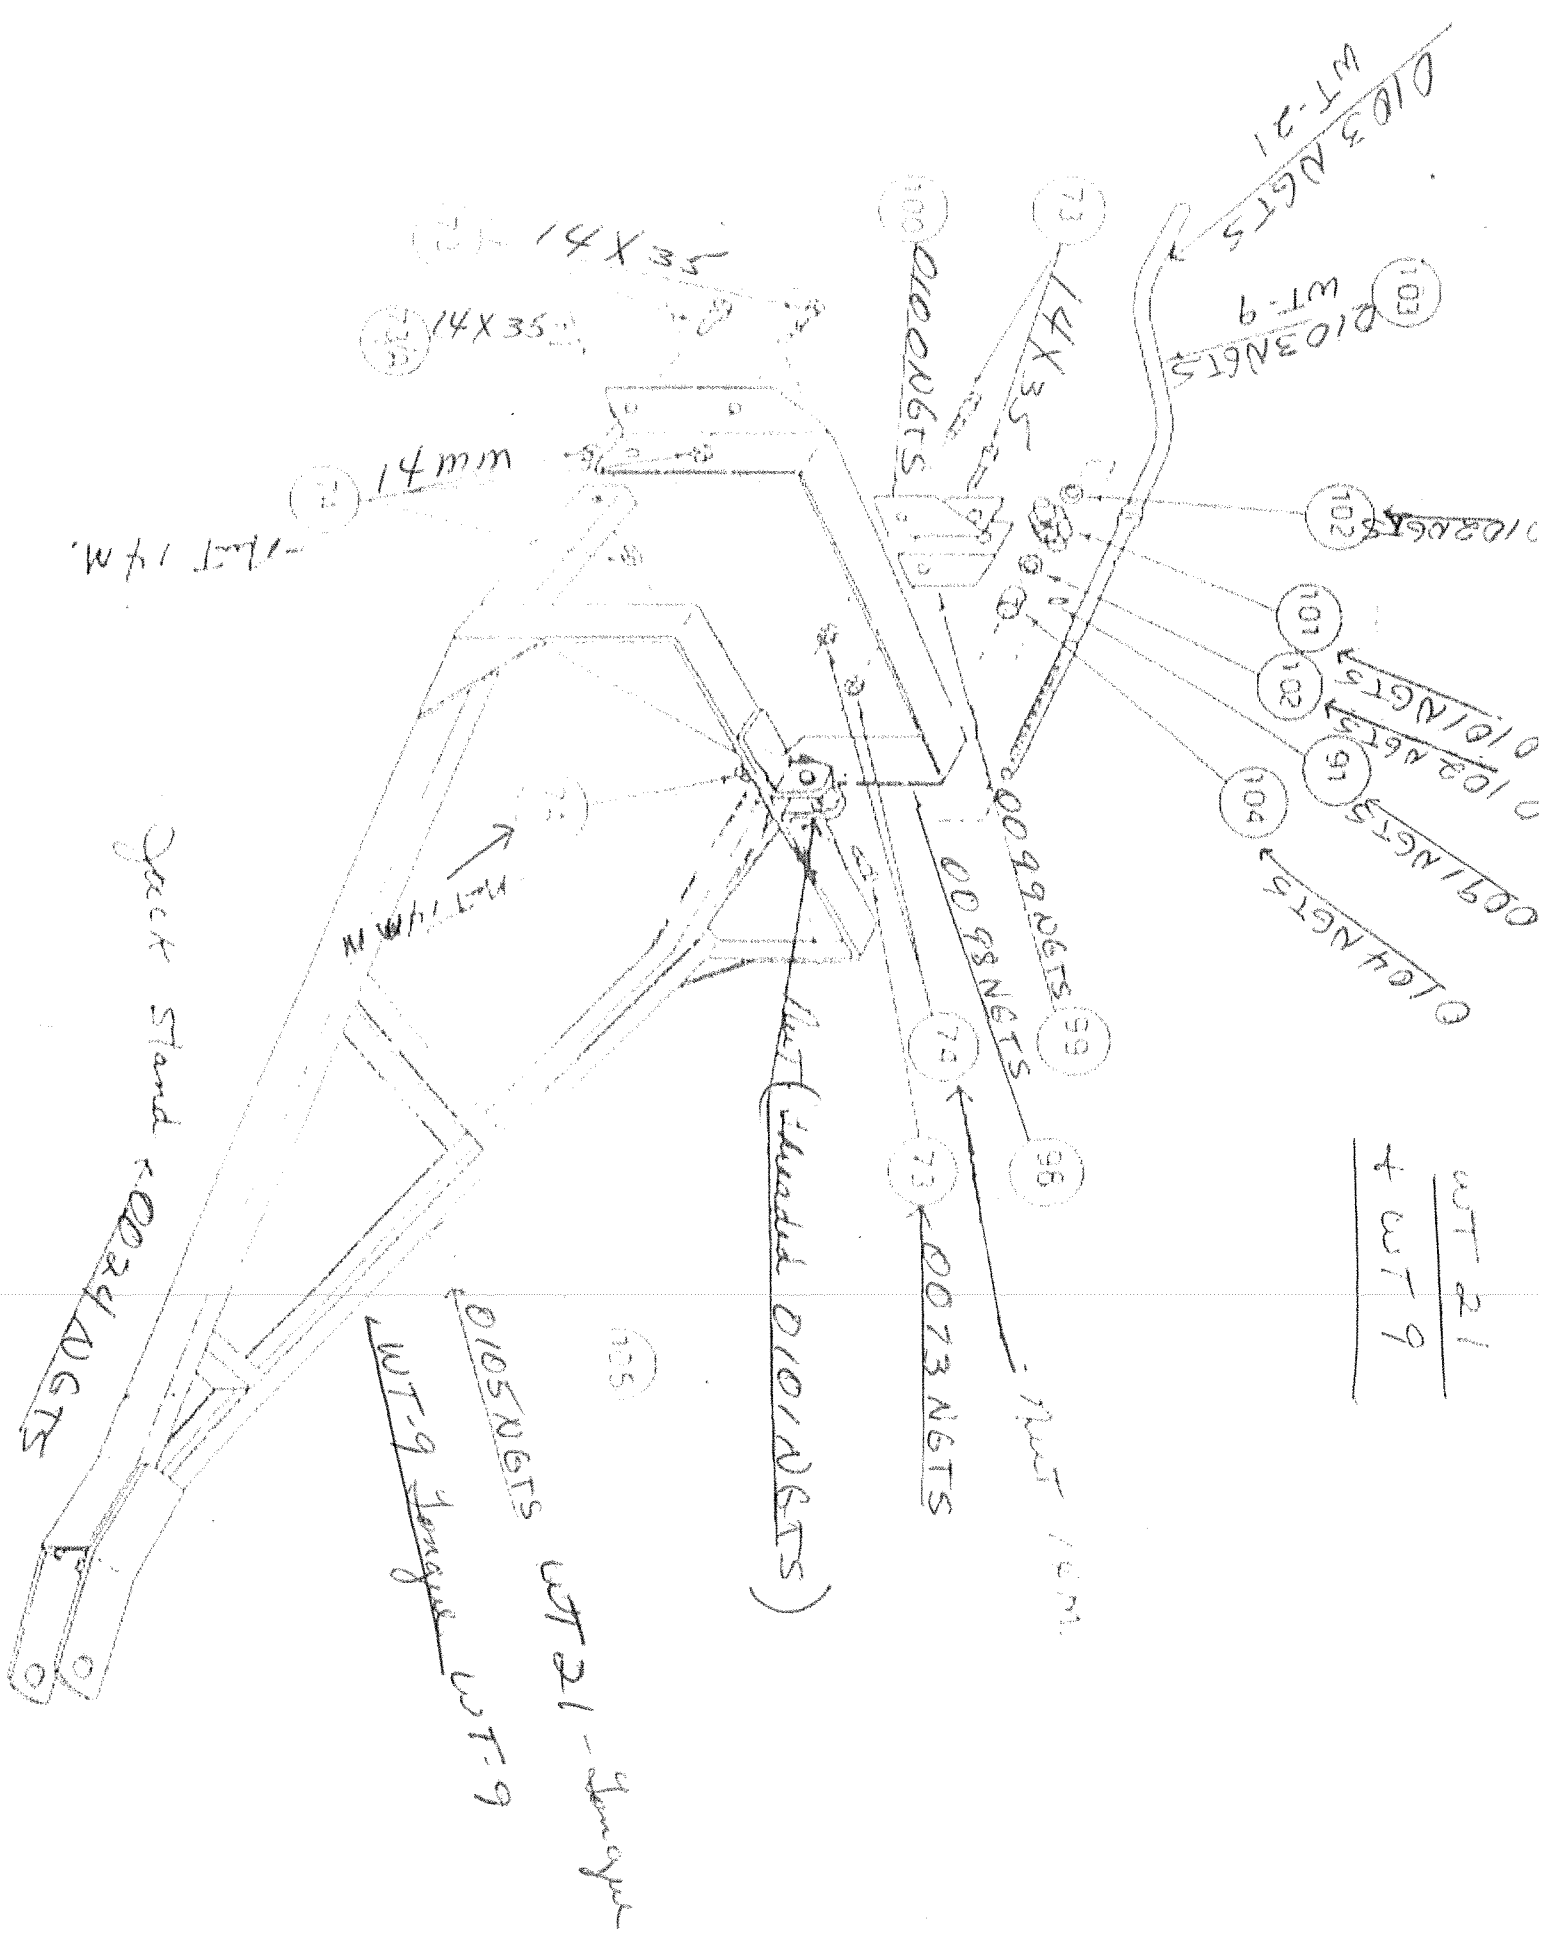 WT 21
+ WT 9
0103NGTS
WT-21
103
0103NGTS
WT-9
102
0102NGTS
101
0101NGTS
102
0102 NGTS
91
0091NGTS
104
0104NGTS
73
14X35
100
0100NGTS
14X35
73A
14X35
14mm
- Nut 14 M.
99
0099NGTS
98
0098NGTS
74
- Nut 14M.
73
0073NGTS
Nut (threaded 0101NGTS)
Nut 14mm
105
0105NGTS
WT 21 - Tongue
WT-9 Tongue WT-9
Jack Stand
0024NGTS